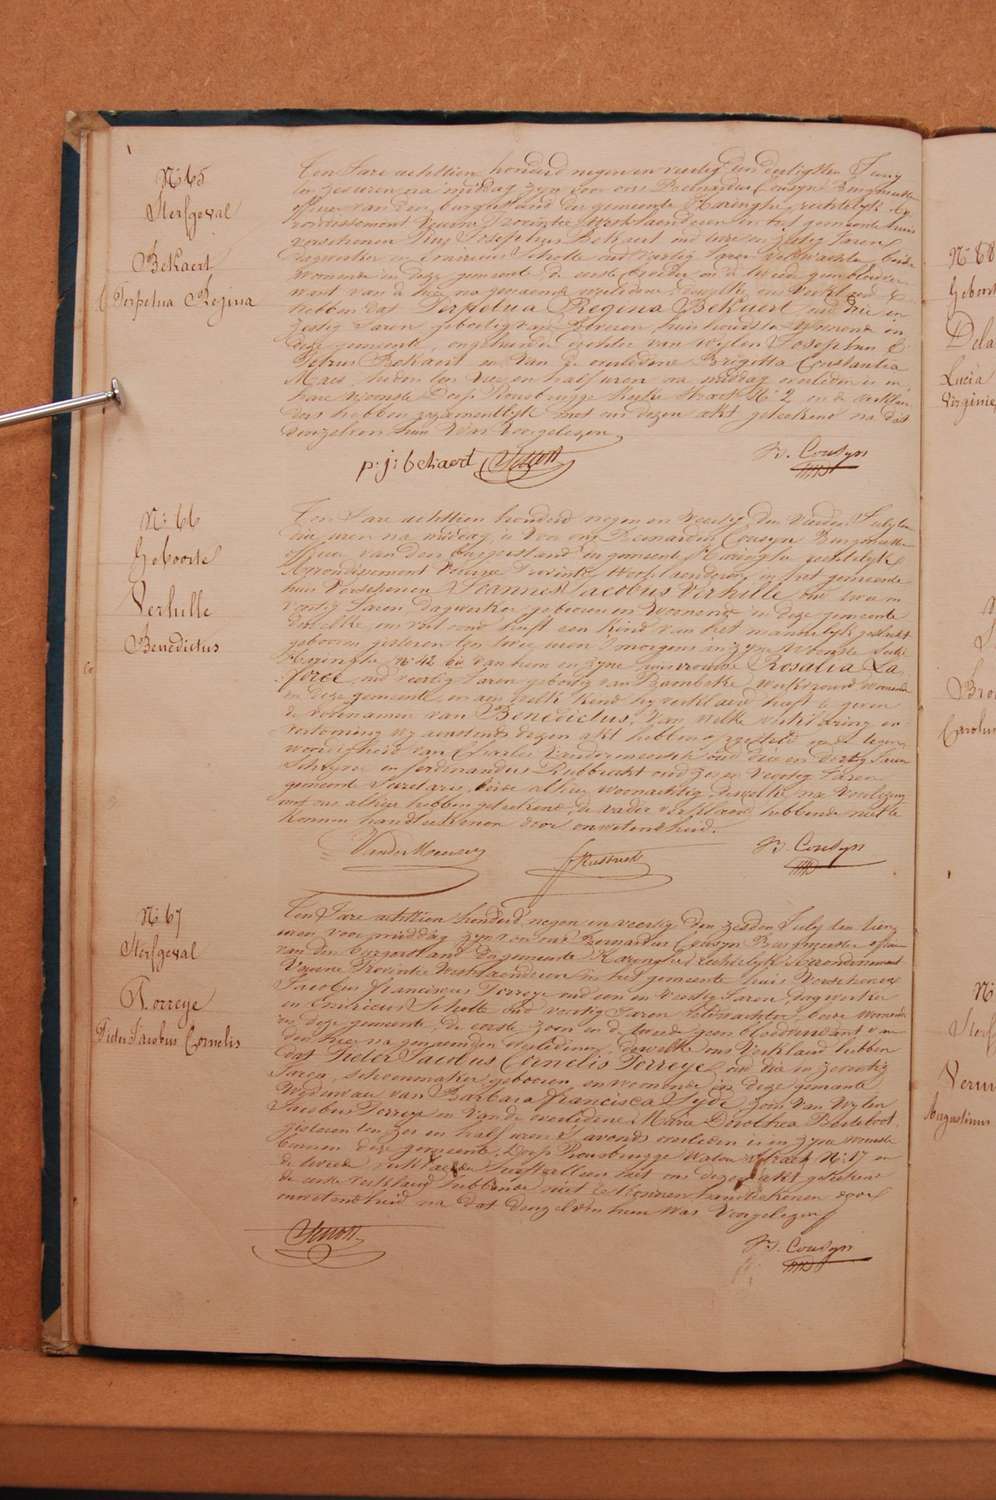 N: 65
Sterfgeval
Bekaert
Perpetua Regina
Ten Jare achttien honderd negen en veertig den dertigsten Juny
ten zes uren na middag zyn voor ons Bernardus Cousyn Burgmeester
officier van den burgerstand der gemeente Haringhe, rechtelyk
arrondissement Veurne Provintie Westvlaenderen in het gemeente huis
verschenen Josephus Bekaert oud Jaren
dagwerker en Scholte oud veertig Jaren Veldwachter, beide
woonende in deze gemeente de eerste broeder en de tweede geen bloedver
want van de hier na genaemde overledene, dewelke ons verklaerd
hebben dat Perpetua Regina Bekaert oud drie en
zestig Jaren, geboortig van Beveren, huishoudster woonende in
deze gemeente, ongehuwde dochter van wylen Josephus
Petrus Bekaert en van de overledene Brigitta Constantia
Maes, heden ten vier en half uren na middag overleden is in
hare woonste Dorp Rousbrugge straet N: 2 en de verklaer
ders hebben gezamentlyk met ons dezen akt geteekend na dat
denzelven hun was voorgelezen
p: j: bekaert
B. Cousyn
N: 66
Geboorte
Verhille
Benedictus
Ten Jare achttien honderd negen en veertig den vierden July ten
drie uren na middag, is voor ons Bernardus Cousyn Burgmeester
officier van den burgerstand der gemeente Haringhe rechtelyk
Arrondissement Veurne Provintie Westvlaenderen in het gemeente
huis verschenen Joannes Jacobus Verhille oud twee en
veertig Jaren dagwerker geboren en woonende in deze gemeente
dewelke ons vertoond heeft een kind van het mannelyk geslacht
geboren gisteren ten twee uren 's morgens in zyne woonste
Haringhe N: 42 van hem en zyne huisvrouwe Rosalia La
force, oud veertig Jaren geboortig van Bambeke, werkvrouw woonende
in deze gemeente en aen welk kind hy verklaerd heeft te geven
de voornamen van Benedictus. Van welke verklaring en
vertooning wy aenstonds dezen akt hebben opgesteld in de tegen
woordigheid van Charles Vandermeersch oud drie en dertig Jaren
en Ferdinandus Rubbrecht oud zes en veertig Jaren
gemeente Secretaris, beide alhier woonachtig, dewelke, na voorlezing
met ons alhier hebben geteekend, de vader verklaerd hebbende niet te
konnen handteekenen door onwetendheid.
B. Cousyn
N: 67
Sterfgeval
Torreye
Pieter Jacobus Cornelis
Ten Jare achttien honderd negen en veertig den zesden July ten tien
uren voor middag zyn voor ons Bernardus Cousyn Burgmeester officier
van den burgerstand der gemeente Haringhe rechtelyk Arrondissement
Veurne Provintie Westvlaenderen in het gemeente huis verschenen
Jacobus Franciscus Torreye oud een en veertig Jaren, dagwerker
en Scholte oud veertig Jaren Veldwachter, beide woonende
in deze gemeente, de eerste zoon en de tweede geen bloedverwant van
den hier na genaemden overledenen, dewelke ons verklaerd hebben
dat Pieter Jacobus Cornelis Torreye oud drie en zeventig
Jaren, schoenmaker geboren en woonende in deze gemeente
Weduwaer van Barbara Francisca Syde, zoon van wylen
Jacobus Torreye en van de overledene Maria Dorothea
gisteren ten zes en half uren 's avonds overleden is in zyne woonste
binnen deze gemeente, Dorp Rousbrugge straet N: 17 en
de tweede verklaerder heeft alleen met ons dezen akt geteekend
de eerste verklaerd hebbende niet te konnen handteekenen door
onwetendheid na dat denzelven hun was voorgelezen
B. Cousyn
N: 68
Geboorte
Dela
Lucia
Virginie
Bro
Carolus
N:
Sterf
Verm
Augustinus